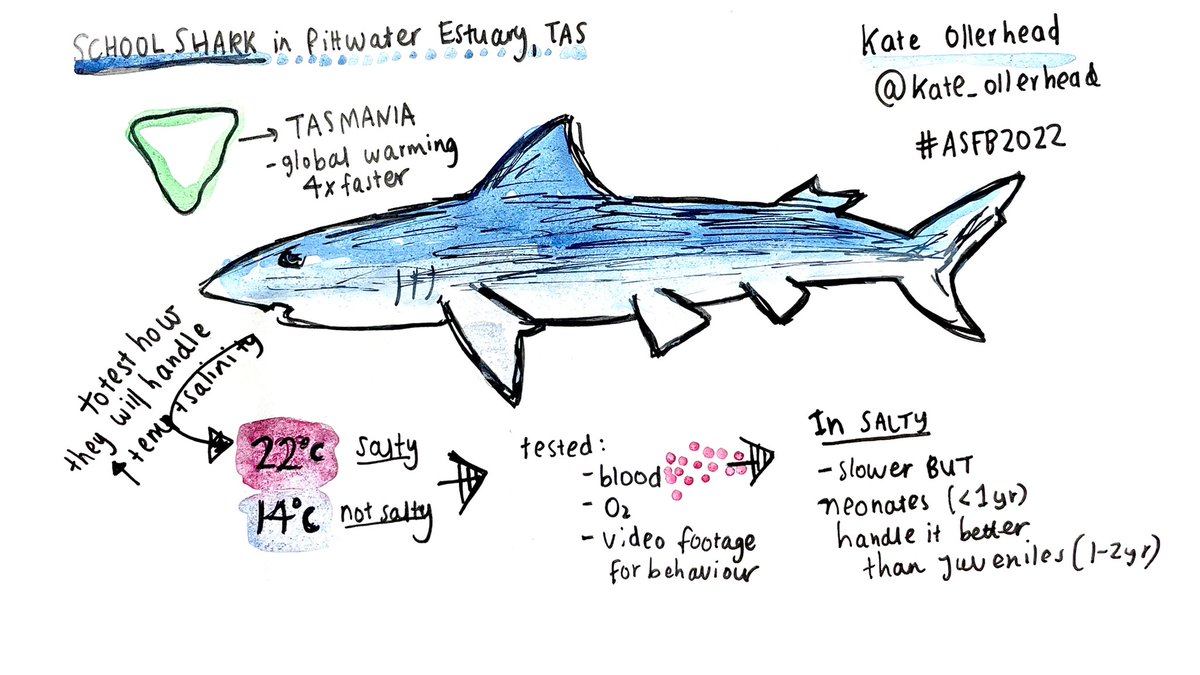 SCHOOL SHARK in Pittwater Estuary, TAS
Kate Ollerhead
@kate_ollerhead
#ASFB2022
→ TASMANIA
- global warming
4x faster
to test how
they will handle
↑ temp + salinity
22°C salty
14°C not salty
tested:
- blood
- O2
- video footage
for behaviour
In SALTY
- slower BUT
neonates (<1yr)
handle it better
than juveniles (1-2yr)